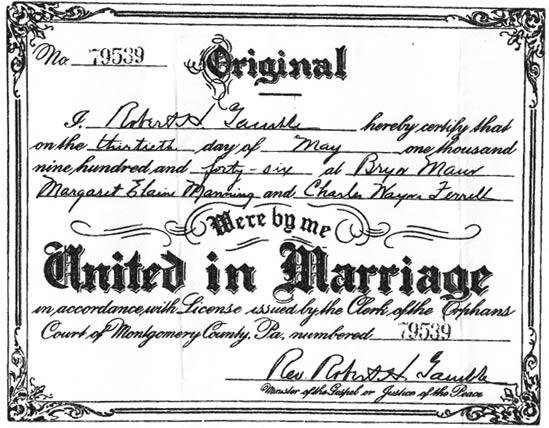 No. 79539 Original
I, Robert H. Gamble hereby certify that
on the thirtieth day of May one thousand
nine hundred and forty-six at Bryn Mawr
Margaret Elaine Manning and Charles Wayne Ferrell
Were by me
United in Marriage
in accordance with License issued by the Clerk of the Orphans
Court of Montgomery County, Pa. numbered 79539
Rev. Robert H. Gamble
Minister of the Gospel or Justice of the Peace